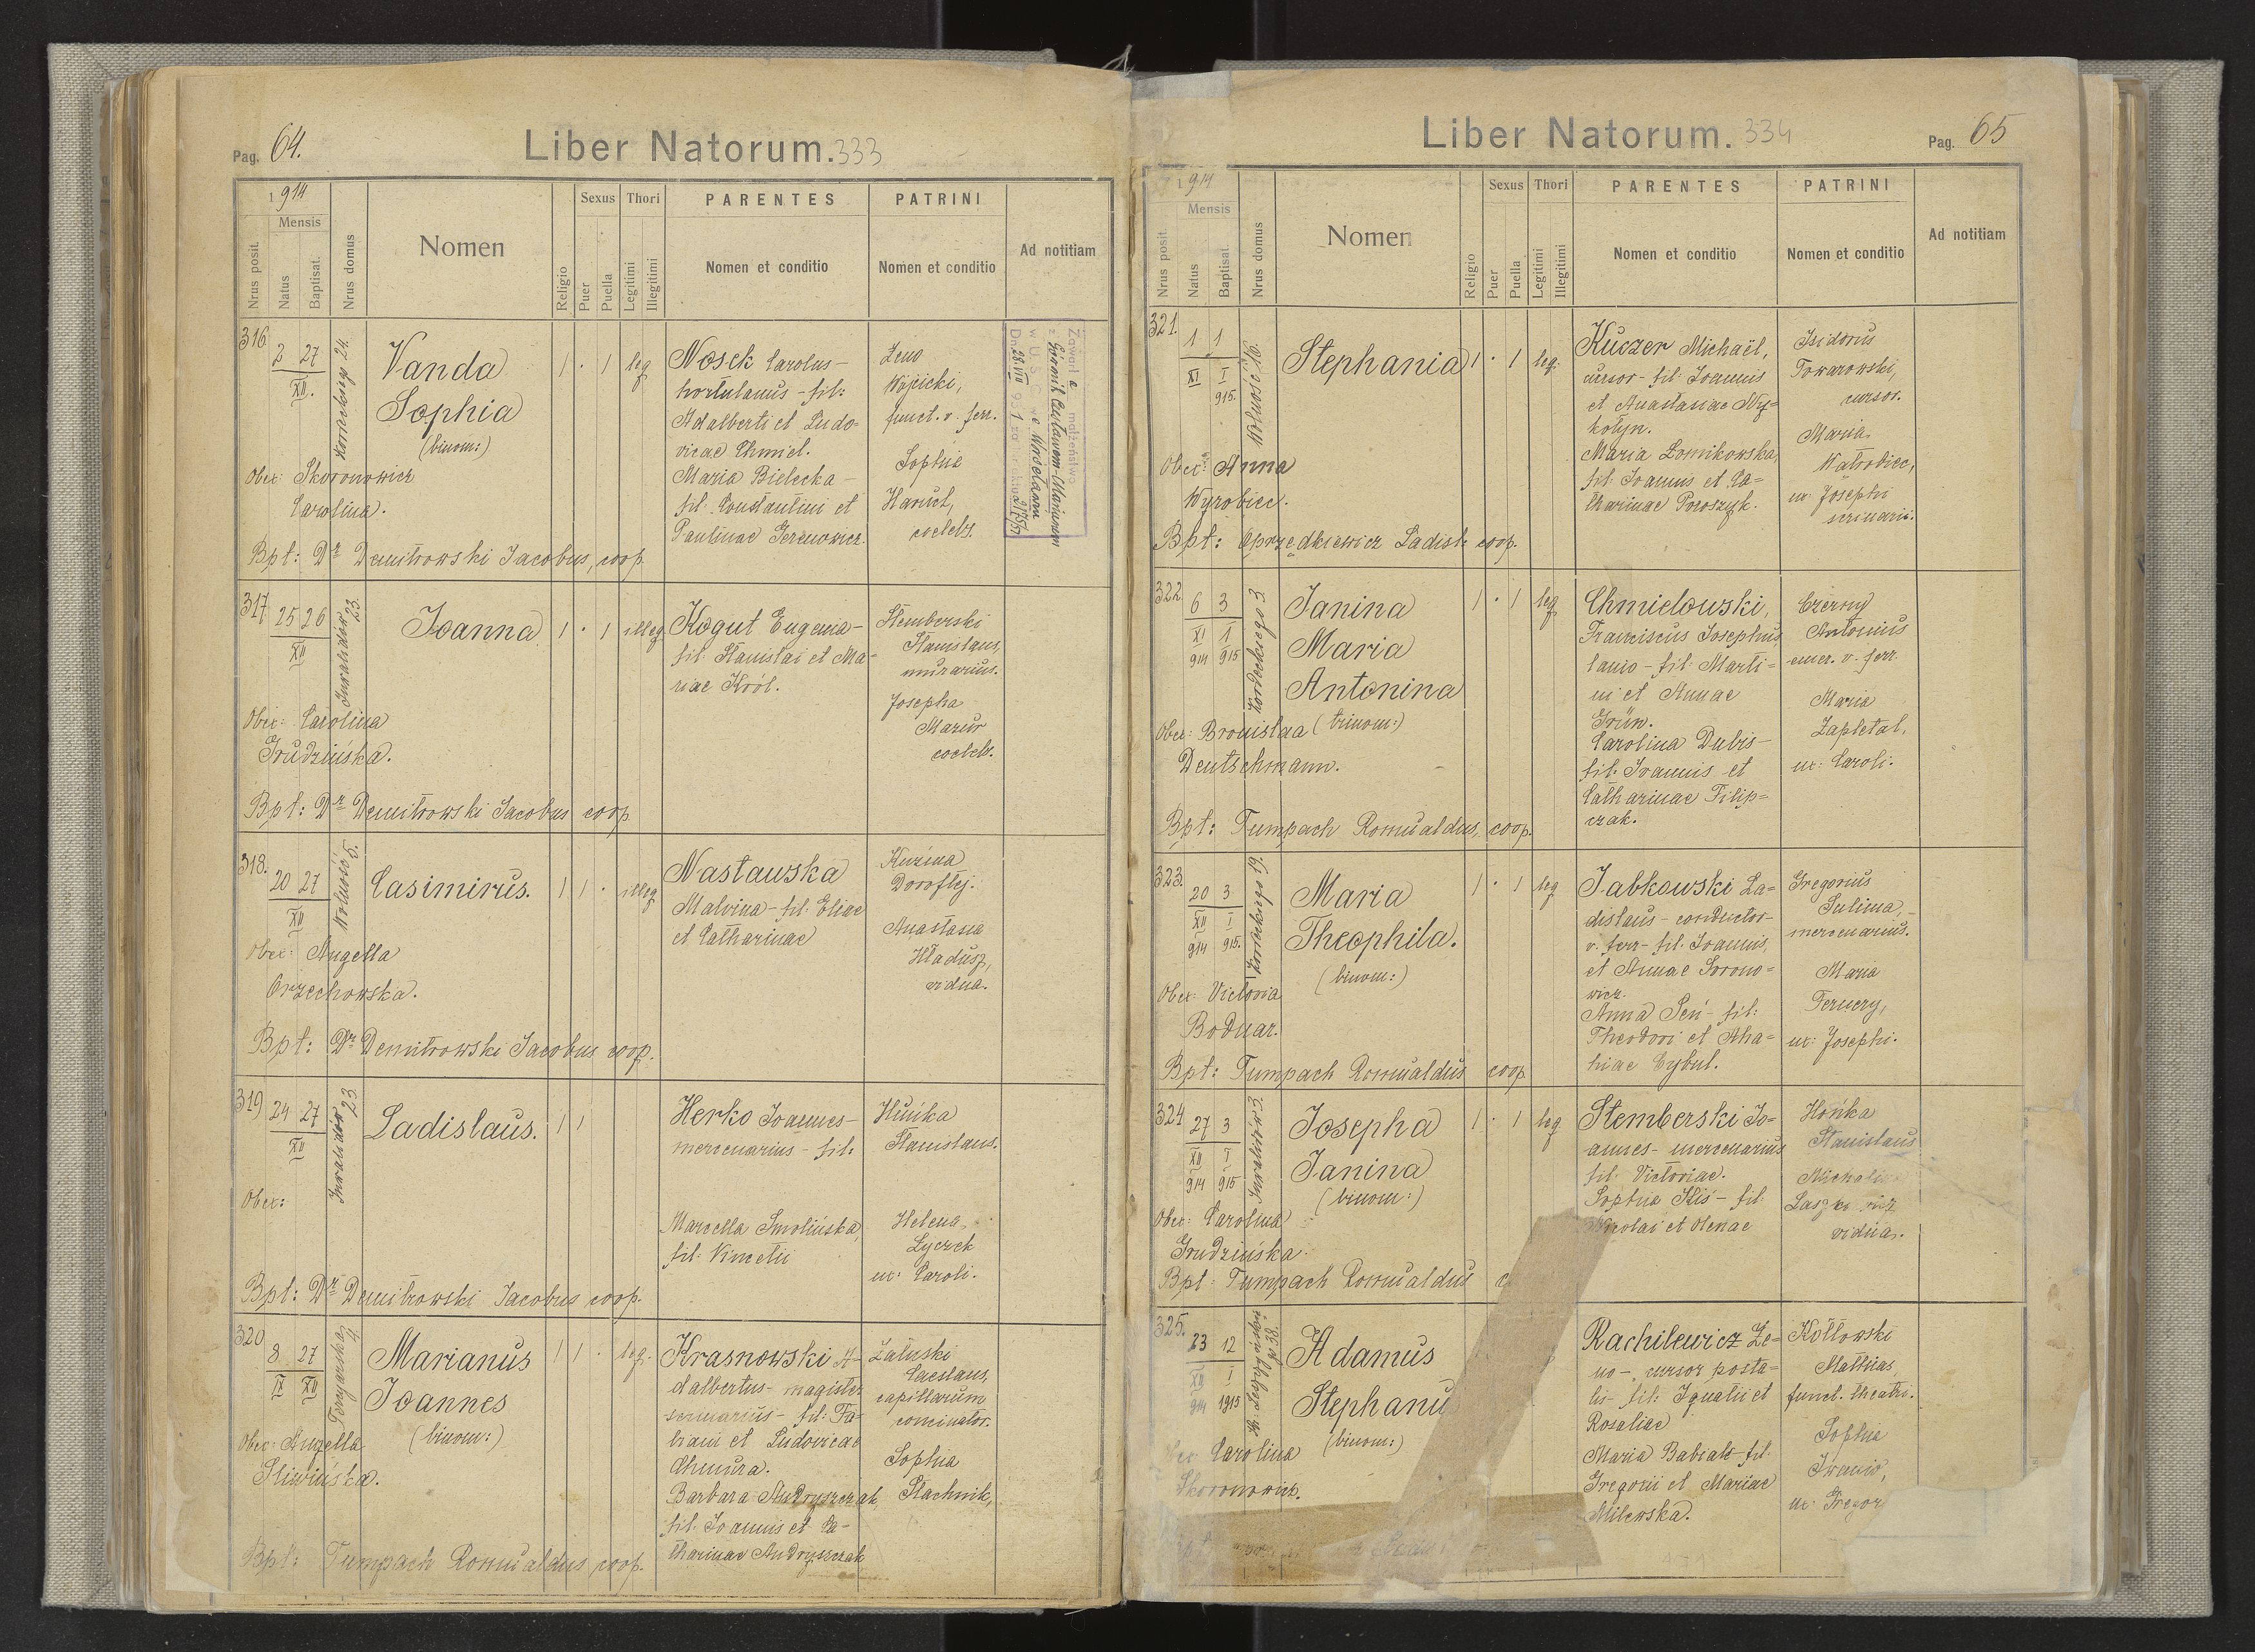 Pag. 64.
Liber Natorum. 333
1914
Mensis
Nrus posit.
Natus
Baptisat.
Nrus domus
Nomen
Religio
Sexus
Puer
Puella
Thori
Legitimi
Illegitimi
PARENTES
Nomen et conditio
PATRINI
Nomen et conditio
Ad notitiam
316.
2 27
XII.
24.
Vanda
Sophia
(binom:)
1 · 1 leg
Obex: Skoronowicz
Carolina.
Nosek Carolus –
hortulanus – fil:
Adalberti et Ludo=
vicae Chmiel.
Maria Bielecka –
fil. Constantini et
Paulinae Jerenowicz.
Zeno
Wójcicki,
funct. v. ferr.
Sophia
Hanul,
coelebs.
Zawarł a małżeństwo
w U. S. C. we Wrocławiu
Bpt: Dr Demitrowski Jacobus, coop.
317
25 26
XII
Inwalidów 23.
Joanna
1 · 1 illeg
Obex: Carolina
Grudzińska.
Kogut Eugenia –
fil. Stanislai et Ma=
riae Król.
Stemberski
Stanislaus,
murarius.
Josepha
Mazur
coelebs.
Bpt: Dr Demitrowski Jacobus coop
318.
20 27
XII
Wolność 5.
Casimirus.
1 1 · illeg
Obex: Angella
Orzechowska.
Nastawska
Malvina – fil. Eliae
et Catharinae
Kuźma
Doroftej.
Anastasia
Hładusz,
vidua.
Bpt: Dr Demitrowski Jacobus coop.
319
24 27
XII
Inwalidów 23.
Ladislaus.
1 1
Obex:
Herko Joannes –
mercenarius – fil:
Marcella Smolińska,
fil. Vincetii
Huńka
Stanislaus.
Helena
Lyczek
ux: Caroli.
Bpt: Dr Demitrowski Jacobus coop.
320
8 27
IX XII
4
Marianus
Joannes
(binom:)
1 1 · leg.
Obex: Angella
Śliwińska.
Krasnowski A=
dalbertus – magister
– fil: Fa=
biani et Ludovicae
Chmura.
Barbara Andryszczak,
fil. Joannis et Ca=
tharinae Andryszczak
Załuski
Caeslaus,
capillarum
concinator.
Sophia
Stachnik,
Bpt: Tumpach Romualdus coop.
Liber Natorum. 334
Pag. 65
1914
Mensis
Nrus posit.
Natus
Baptisat.
Nrus domus
Nomen
Religio
Sexus
Puer
Puella
Thori
Legitimi
Illegitimi
PARENTES
Nomen et conditio
PATRINI
Nomen et conditio
Ad notitiam
321.
1 1
XI I
915.
Wolność 16.
Stephania
1 · 1 leg.
Obex: Anna
Wyrobiec.
Kuczer Michaël,
cursor – fil: Joannis
et Anastasiae Ny=
kołyn.
Maria Łomikowska,
fil. Joannis et Ca=
tharinae Poroszyk.
Isidorus
Towarowski,
cursor.
Maria
Watrobiec,
ux: Josephi
scrinarii.
Bpt: Oprzędkiewicz Ladisl. coop.
322.
6 3
XI 1
914 915
Kordeckiego 3.
Janina
Maria
Antonina
(trinom:)
1 · 1 leg
Obex: Bronislaa
Deutschmann.
Chmielowski,
Franciscus Josephus,
lanio – fil: Marti=
ni et Annae
Grün.
Carolina Dubis –
fil: Joannis et
Catharinae Filip=
czak.
Czerny
Antonius
emer. v. ferr.
Maria
Zapletal,
ux: Caroli.
Bpt: Tumpach Romualdus, coop.
323.
20 3
XII I
914 915.
19.
Maria
Theophila.
(binom:)
1 · 1 leg
Obex: Victoria
Bodnar.
Jabkowski La=
dislaus – conductor –
v. ferr – fil. Joannis,
et Annae Sorono=
wicz.
Anna Seń – fil:
Theodori et Atha=
niae Cybul.
Gregorius
Sulima,
mercenarius.
Maria
Ternery,
ux: Josephi.
Bpt: Tumpach Romualdus coop.
324
27 3
XII I
914 915
Inwalidów
Josepha
Janina
(binom:)
1 · 1 leg
Obex: Carolina
Grudzińska.
Stemberski Jo=
annes – mercenarius
fil. Victoriae.
Sophia Kliś – fil.
Nicolai et Olenae
Hońka
Stanislaus
vidua.
Bpt: Tumpach Romualdus c
325.
23 12
XII I
914 1915
38.
Adamus
Stephanu
(binom:)
Obex: Carolina
Skoronowicz.
Rachilewicz Ze=
no –, cursor posta=
lis – fil: Ignatii et
Rosaliae
Maria Babiak – fil.
Gregorii et Mariae
Milewska.
Kotłowski
Mathias,
funct. theatri.
Sophia
Iwaniw,
ux: Gregor
Bpt